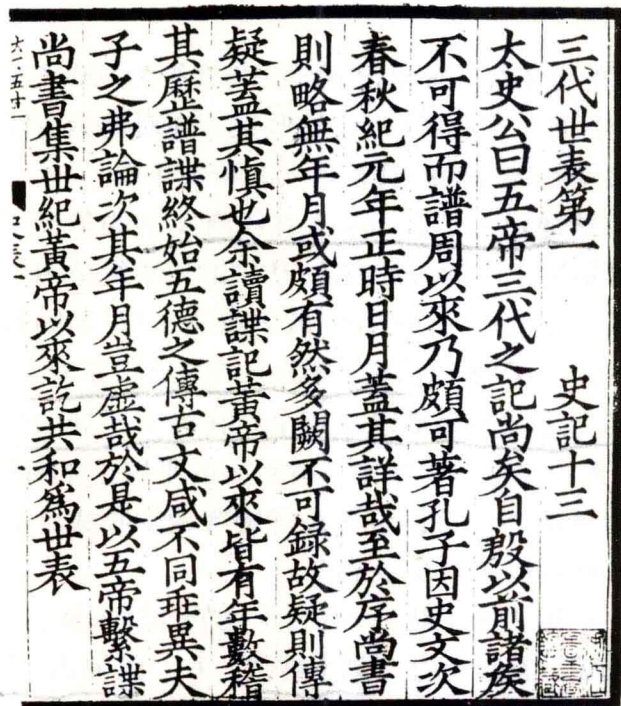 三代世表第一　史記十三
太史公曰五帝三代之記尚矣自殷以前諸矦
不可得而譜周以來乃頗可著孔子因史文次
春秋紀元年正時日月蓋其詳哉至於序尚書
則略無年月或頗有然多闕不可録故疑則傳
疑蓋其慎也余讀諜記黃帝以來皆有年數稽
其歷譜諜終始五德之傳古文咸不同乖異夫
子之弗論次其年月豈虛哉於是以五帝繫諜
尚書集世紀黃帝以來訖共和爲世表